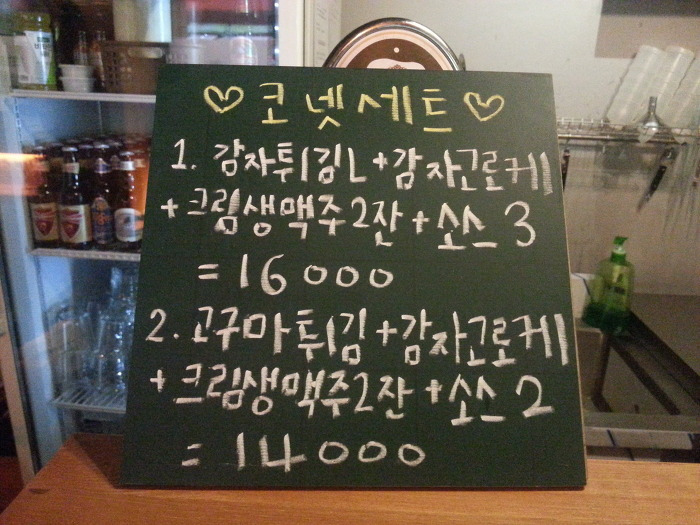 ♡코넷세트♡
1. 감자튀김L+감자고로케
+크림생맥주2잔+소스3
=16000
2. 고구마튀김+감자고로케
+크림생맥주2잔+소스2
=14000